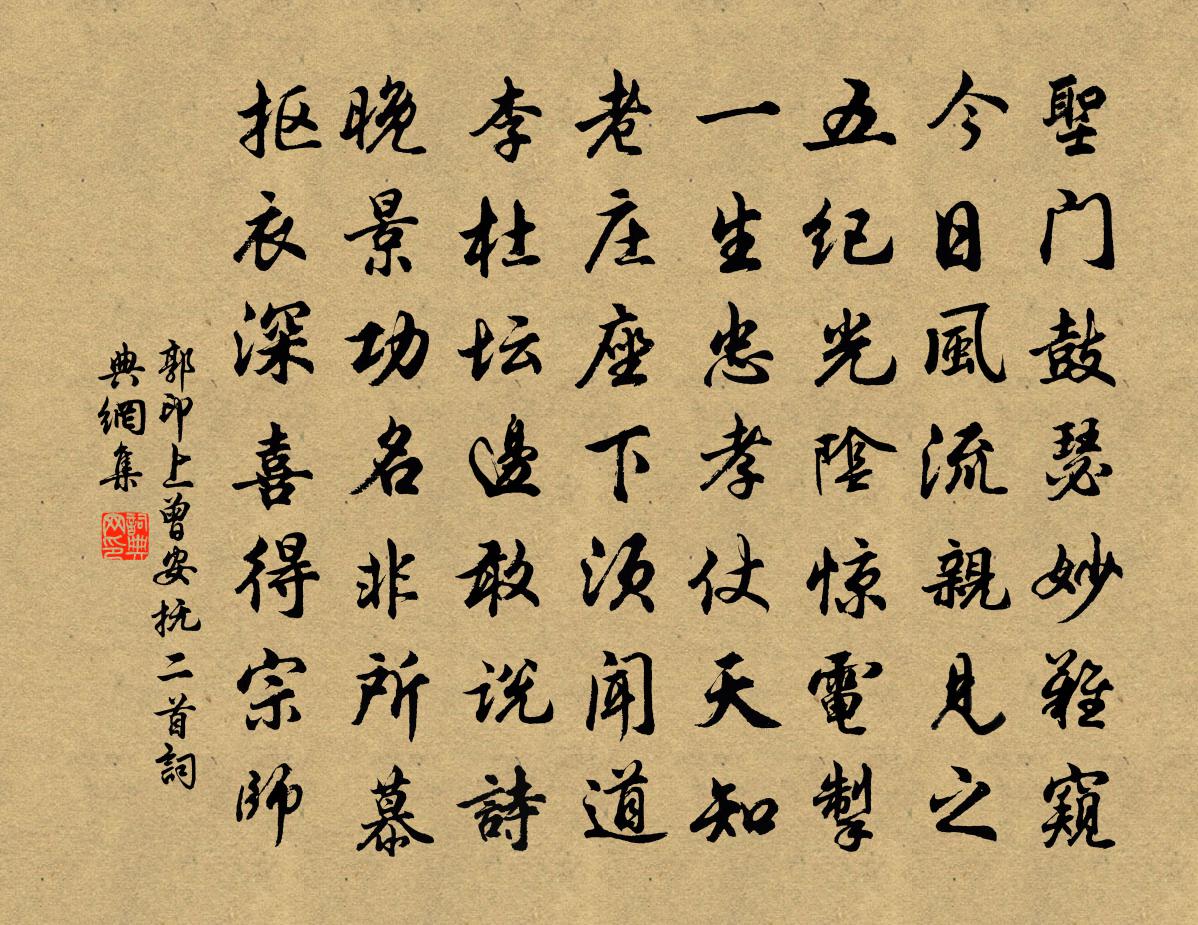 聖门鼓瑟妙難窺
今日風流親見之
五纪光陰惊電掣
一生忠孝仗天知
老庄座下须闻道
李杜坛邊敢说詩
晚景功名非所慕
抠衣深喜得宗師
郭印上曾安抚二首詞
典網集
詞典网印